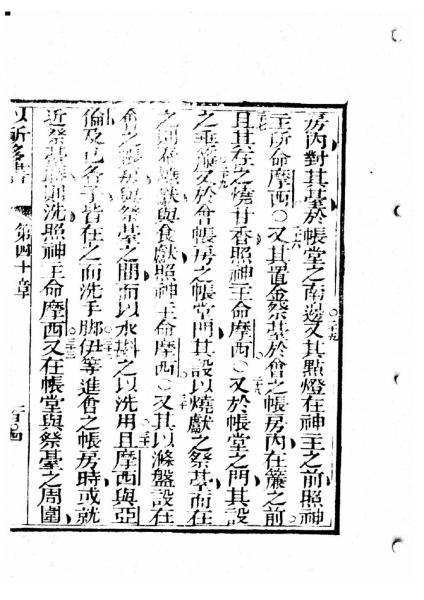 房內對其臺於帳堂之南邊又其點燈在神主之前照神
主所命摩西〇又其置金祭基於會之帳房內在簾之前
且其在之燒甘香照神主命摩西〇又於帳堂之門其設
之垂簾又於會帳房之帳堂門其設以燒獻之祭基而在
之則奉燒獻與食獻照神主命摩西〇又其以滌盤設在
會之帳房與祭基之間而以水斟之以洗用且摩西與亞
倫及己各子皆在之而洗手脚伊等進會之帳房時或就
近祭基時即洗照神主命摩西又在帳堂與祭基之周圍
第四十章